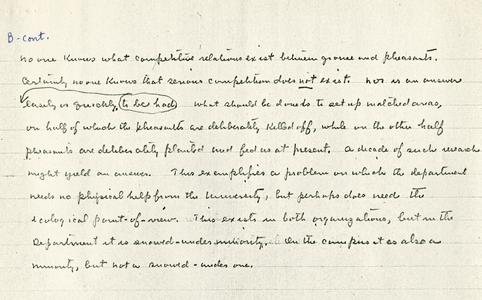 B-cont.
no one knows what competitive relations exist between grouse and pheasants.
Certainly no one knows that serious competition does not exist. Nor is an answer
easily or quickly (to be had) what should be done is to set up matched areas,
on half of which the pheasants are deliberately killed off, while on the other half
pheasants are deliberately planted and fed as at present. A decade of such research
might yield an answer. This exemplifies a problem on which the department
needs no physical help from the University, but perhaps does need the
ecological point-of-view. This exists in both organizations, but in the
Department it is a snowed-under minority. On the campus it is also a
minority, but not a snowed-under one.